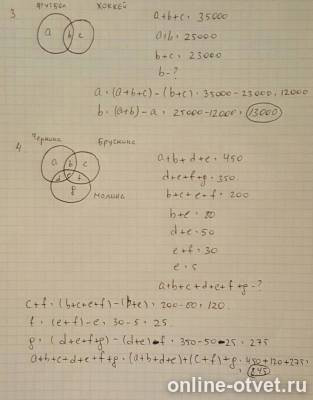 3.
футбол хоккей
a b c
a+b+c = 35000
a+b = 25000
b+c = 23000
b - ?
a = (a+b+c) - (b+c) = 35000 - 23000 = 12000
b = (a+b) - a = 25000 - 12000 = 13000
4.
Черника Брусника
a b c
d e f
g
малина
a+b+d+e = 450
d+e+f+g = 350
b+c+e+f = 200
b+e = 80
d+e = 50
e+f = 30
e = 5
a+b+c+d+e+f+g - ?
c+f = (b+c+e+f) - (b+e) = 200 - 80 = 120
f = (e+f) - e = 30 - 5 = 25
g = (d+e+f+g) - (d+e) - f = 350 - 50 - 25 = 275
a+b+c+d+e+f+g = (a+b+d+e) + (c+f) + g = 450 + 120 + 275 =
845
online-otvet.ru